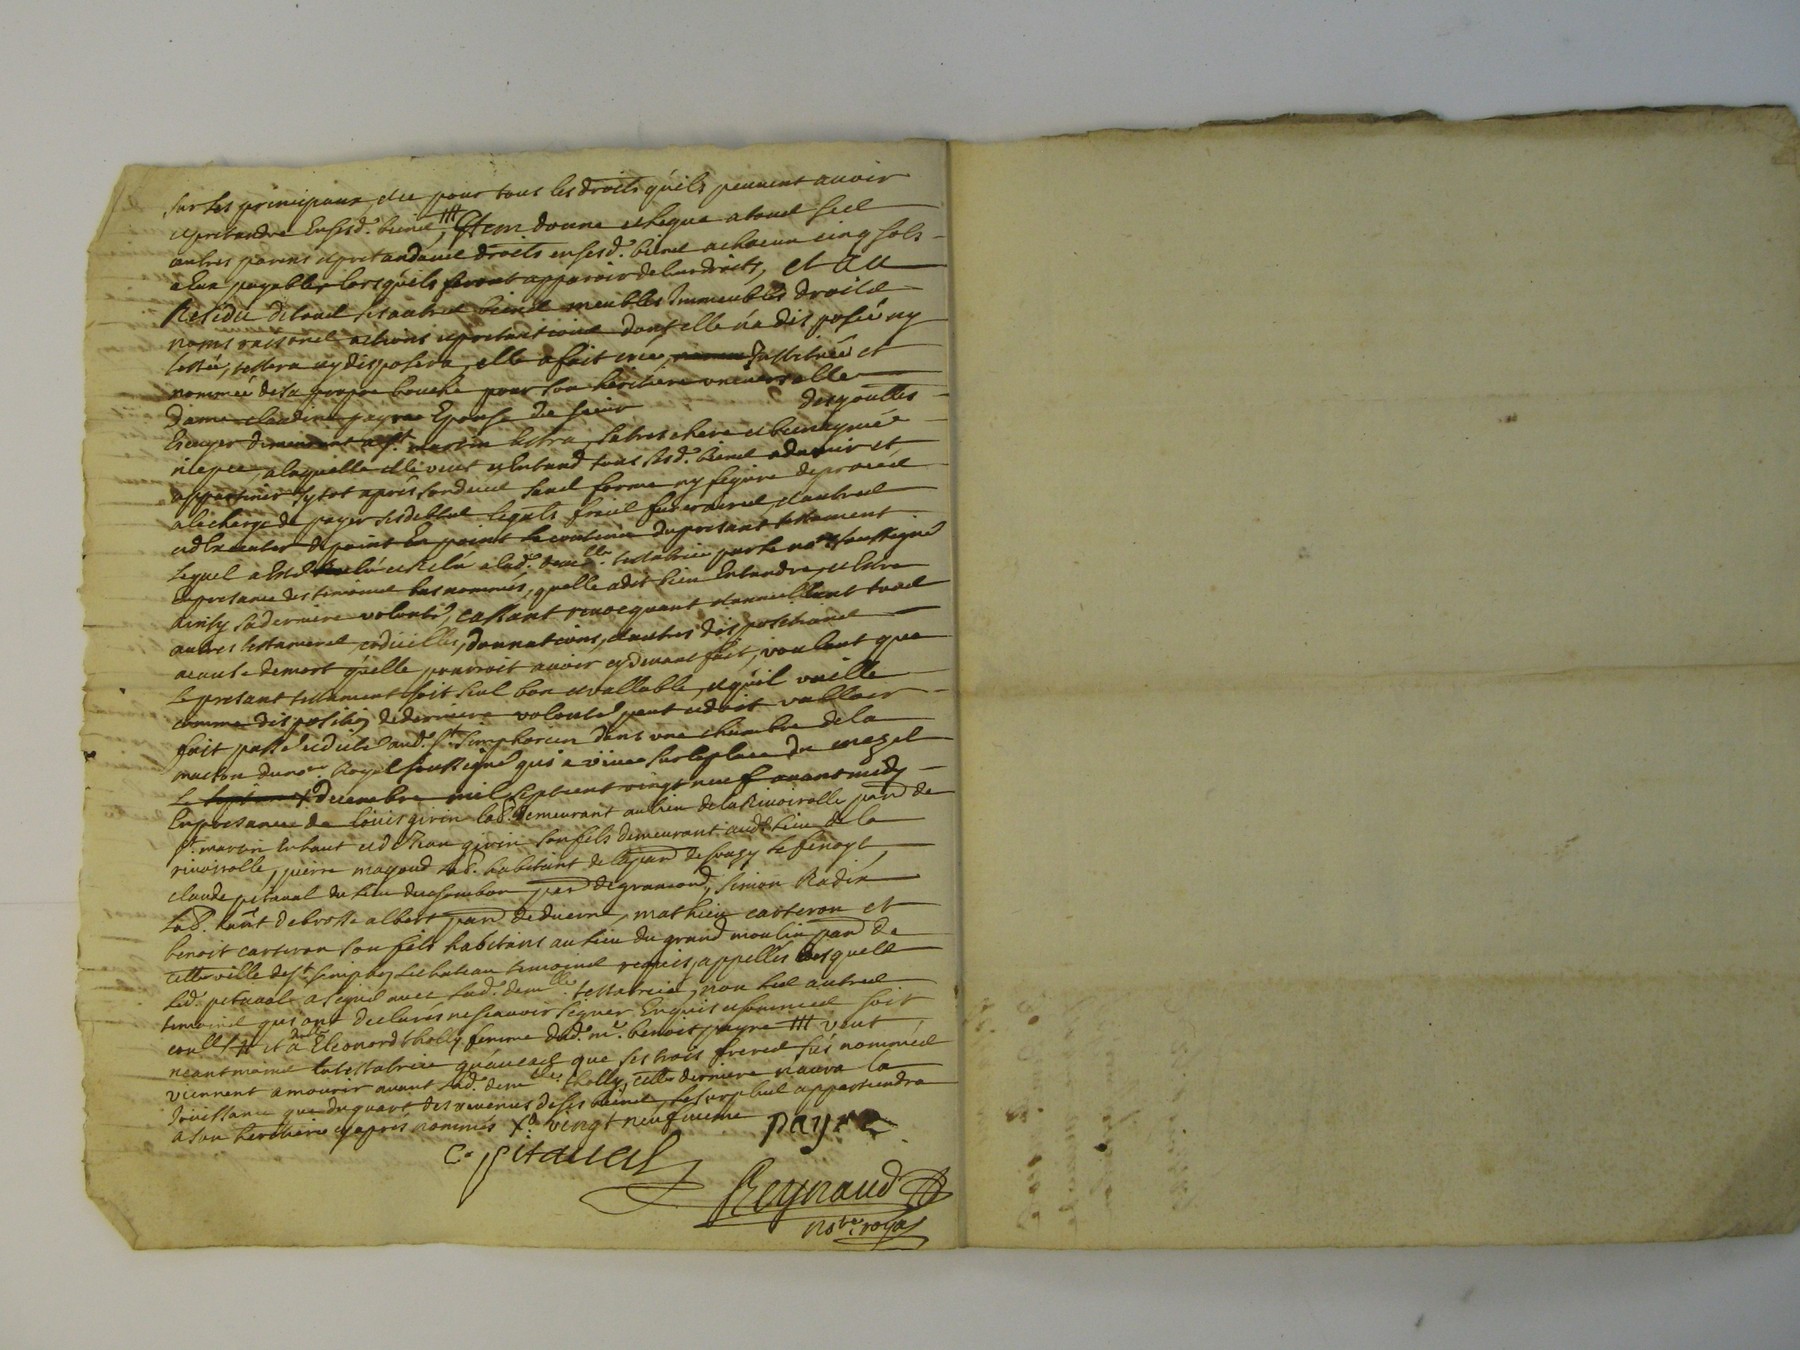 sur ses principaux, et ce pour tous les droits quils peuvent avoir
et pretandre en sesd. biens, # Item donne et legue a tous ses
autres parens et pretandants droits en sesd. biens a chacun cinq sols
a eux payables lorsquils feront apparoir de leur droits, et au
Residu de tous ses autres biens meubles Immeubles droits
noms raisons actions et pretantions dont elle n'a disposé ny
testé, testera ny disposera, elle a fait creé, Institueé et
nommeé de sa propre bouche pour son heritiere universelle
Dame claudine payre Epouse de sieur desgouttes
Ecuyer demeurant a st. martin lestra, sa tres chere et bienaymeé
niepce, a laquelle elle veut et entend tous sesd. biens advenir et
appartenir sytot aprés son deces sans forme ny figure de procés
a la charge de payer ses dettes legats frais funeraires, et autres
et d'executer de point en point le contenu du presant testament
Lequel a esté leu et releu a lad. demlle. testatrice par le nore. soussigné
en presance des temoins bas nommés, quelle a dit bien entandre et estre
ainsy sa derniere volonté, cassant revocquant et annullant tous
autres testamens, codicilles, donnations, et autres dispositions
a cause de mort qu'elle pourroit avoir cy devant fait, voulant que
le presant testament soit seul bon et vallable, et quil vaille
comme disposition de derniere volonté peut et doit valloir
fait passé audt. st. Simphorien dans une chambre de la
maison du nore. Royal soussigné qui a viüe sur la place du mezel
Le x decembre mil sept cent vingt neuf avant midy
En presance de Louis girin lab. demeurant au lieu de la Rivoirolle par. de
st. martin en haut et de Jean girin son fils demeurant audt. lieu de la
rivoirolle, pierre mayoud lab. habitant de la par. de souzy
claude pitaval du lieu par. de gramond, Simon Radix
Lab. hant. de brosse albert par. de duerne, mathieu carteron et
benoit carteron son fils habitans au lieu du grand moulin par. de
cette ville de st. Simphor. le chateau temoins requis, appellés desquels
led. pitaval a signé avec lad. demlle. testatrice, non les autres
temoins qui ont declarés ne scavoir signer Enquis et sommés soit
conllé # et a Eleonord tholly femme dud. mr. benoit payre # veut
neantmoins la testatrice qu'au cas que ses trois freres sus nommés
viennent a mourir avant lad. demlle. tholly, cette derniere n'aura la
Joüissance que du quart des revenus de ses biens, le surplus appartiendra
a son heritiere cy aprés nommeé x vingt neuvieme payre
C. pitaval
Reynaud
Nore. royal